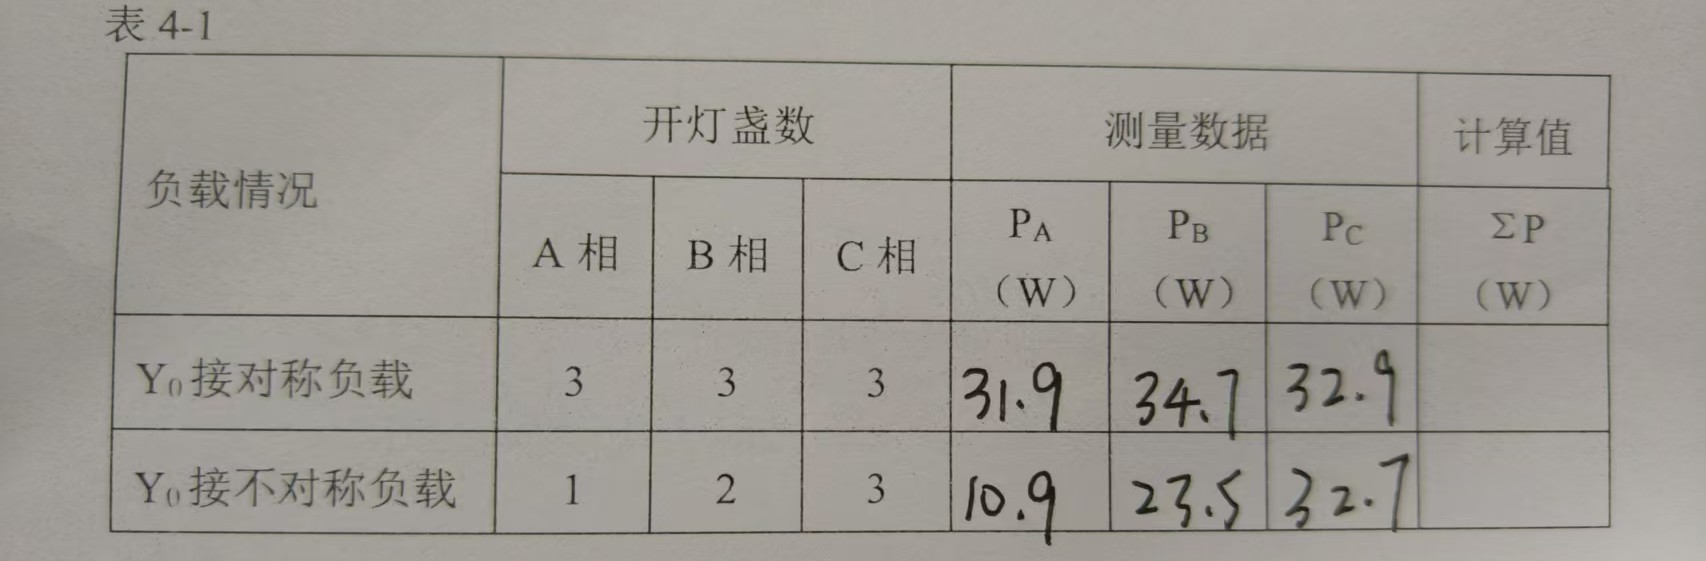 表 4-1
负载情况 开灯盏数 测量数据 计算值
A 相 B 相 C 相 PA (W) PB (W) PC (W) ΣP (W)
Y0 接对称负载 3 3 3 31.9 34.7 32.9
Y0 接不对称负载 1 2 3 10.9 23.5 32.7